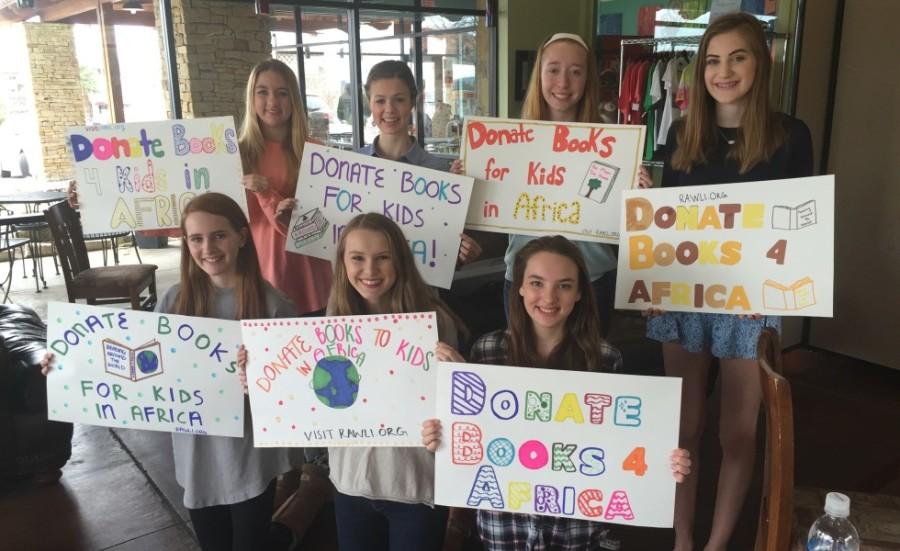 Donate Books
4 Kids in
AFRICA
DONATE BOOKS
FOR KIDS
IN
A!
Donate Books
for Kids
in Africa
RAWLI.ORG
DONATE
BOOKS 4
AFRICA
DONATE BOOKS
READING
AROUND
THE WORLD
FOR KIDS
IN AFRICA
RAWLI.ORG
DONATE BOOKS TO KIDS
IN AFRICA
VISIT RAWLI.ORG
DONATE
BOOKS 4
AFRICA